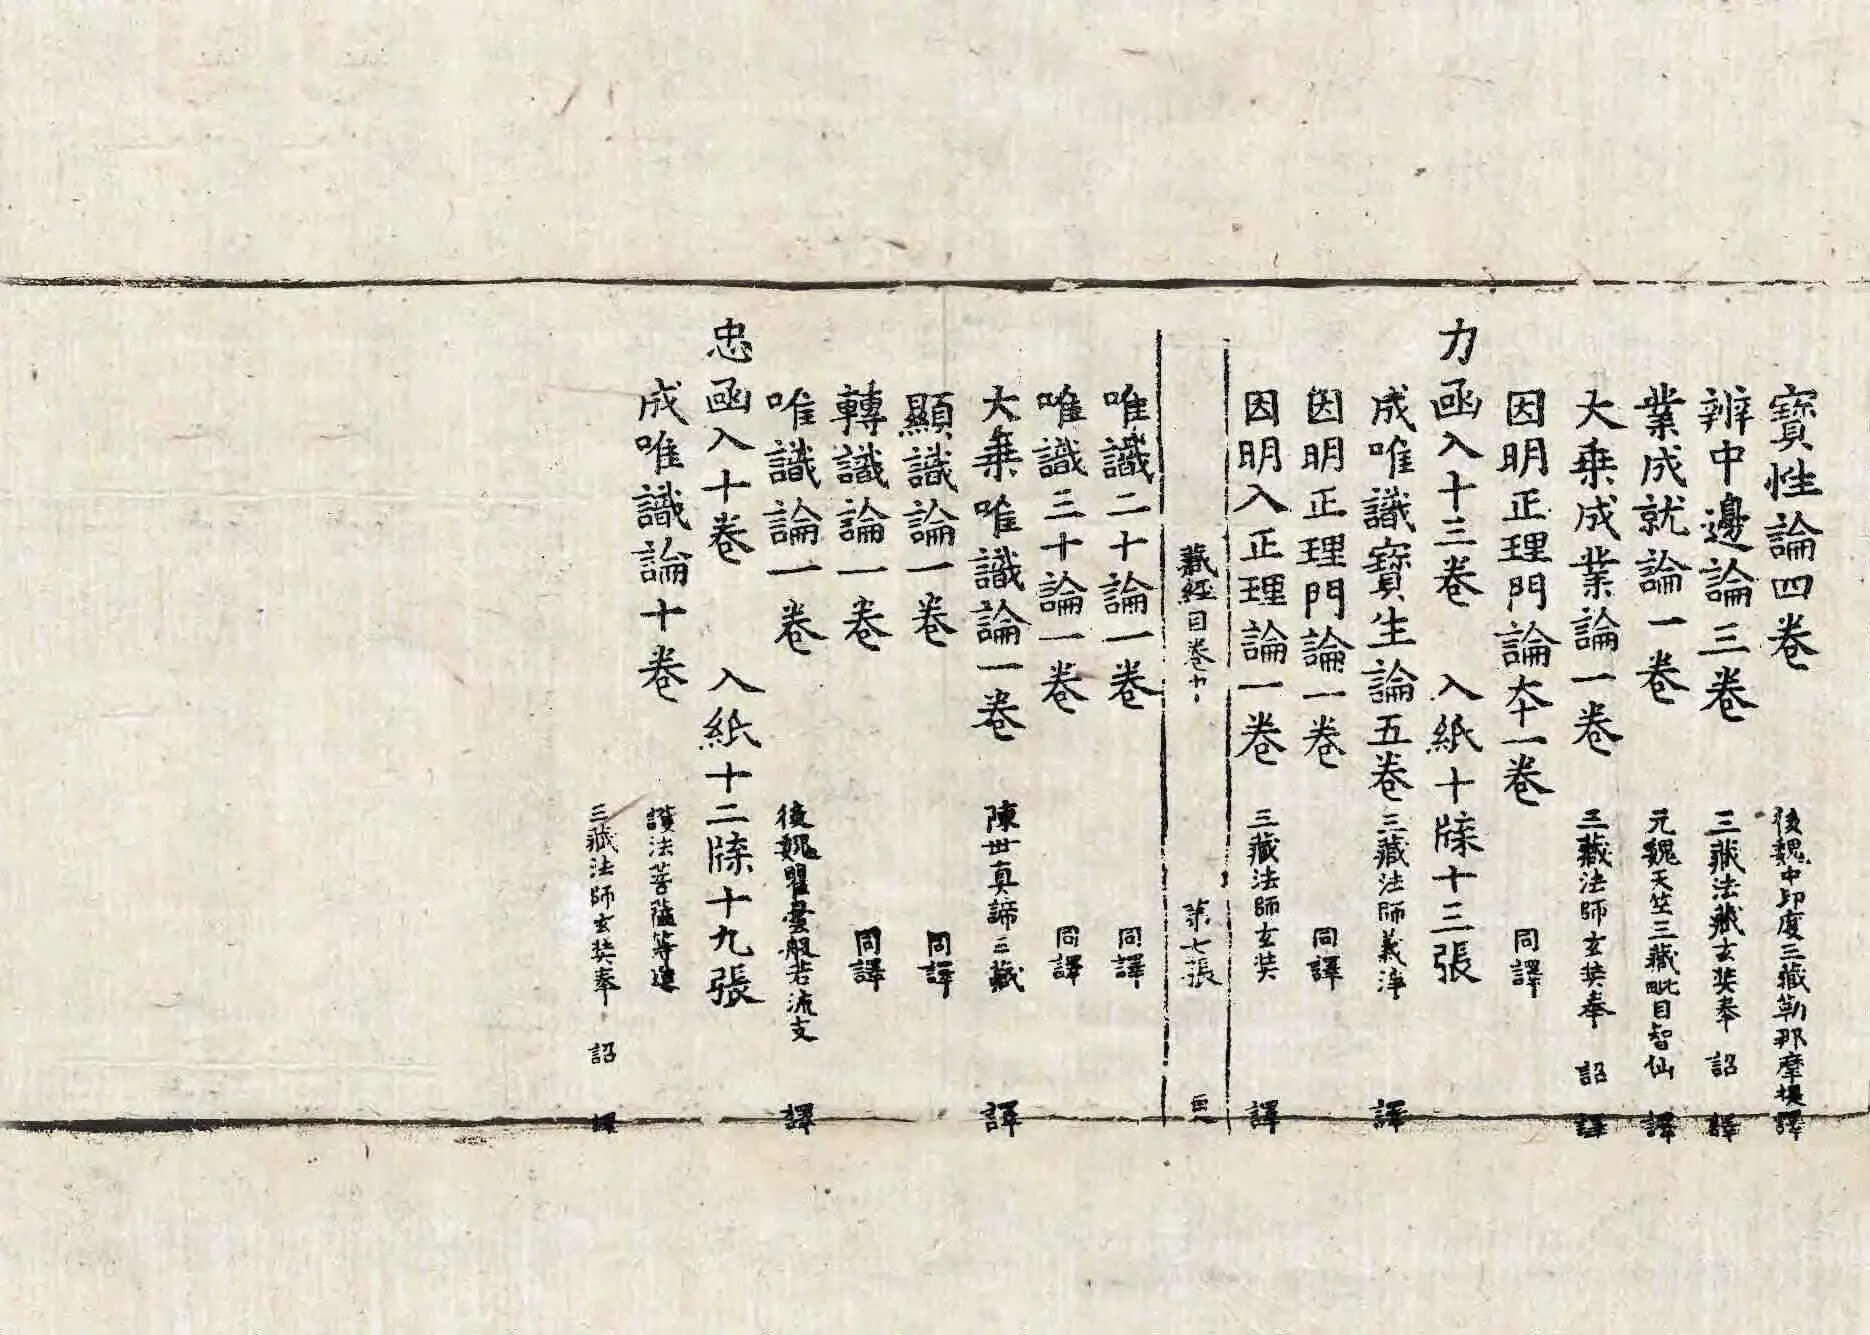 寶性論四卷 後魏中印度三藏勒那摩提譯
辨中邊論三卷 三藏法藏玄奘奉 詔 譯
業成就論一卷 元魏天竺三藏毗目智仙 譯
大乗成業論一卷 三藏法師玄奘奉 詔 譯
因明正理門論夲一卷 同譯
力函入十三卷 入紙十牒十三張
成唯識寶生論五卷 三藏法師義淨 譯
因明正理門論一卷 同譯
因明入正理論一卷 三藏法師玄奘 譯
藏經目卷十 第七張
唯識二十論一卷 同譯
唯識三十論一卷 同譯
大乗唯識論一卷 陳世真諦三藏 譯
顯識論一卷 同譯
轉識論一卷 同譯
唯識論一卷 後魏瞿曇般若流支 譯
忠函入十卷 入紙十二牒十九張
成唯識論十卷 護法菩薩等造
三藏法師玄奘奉 詔 譯